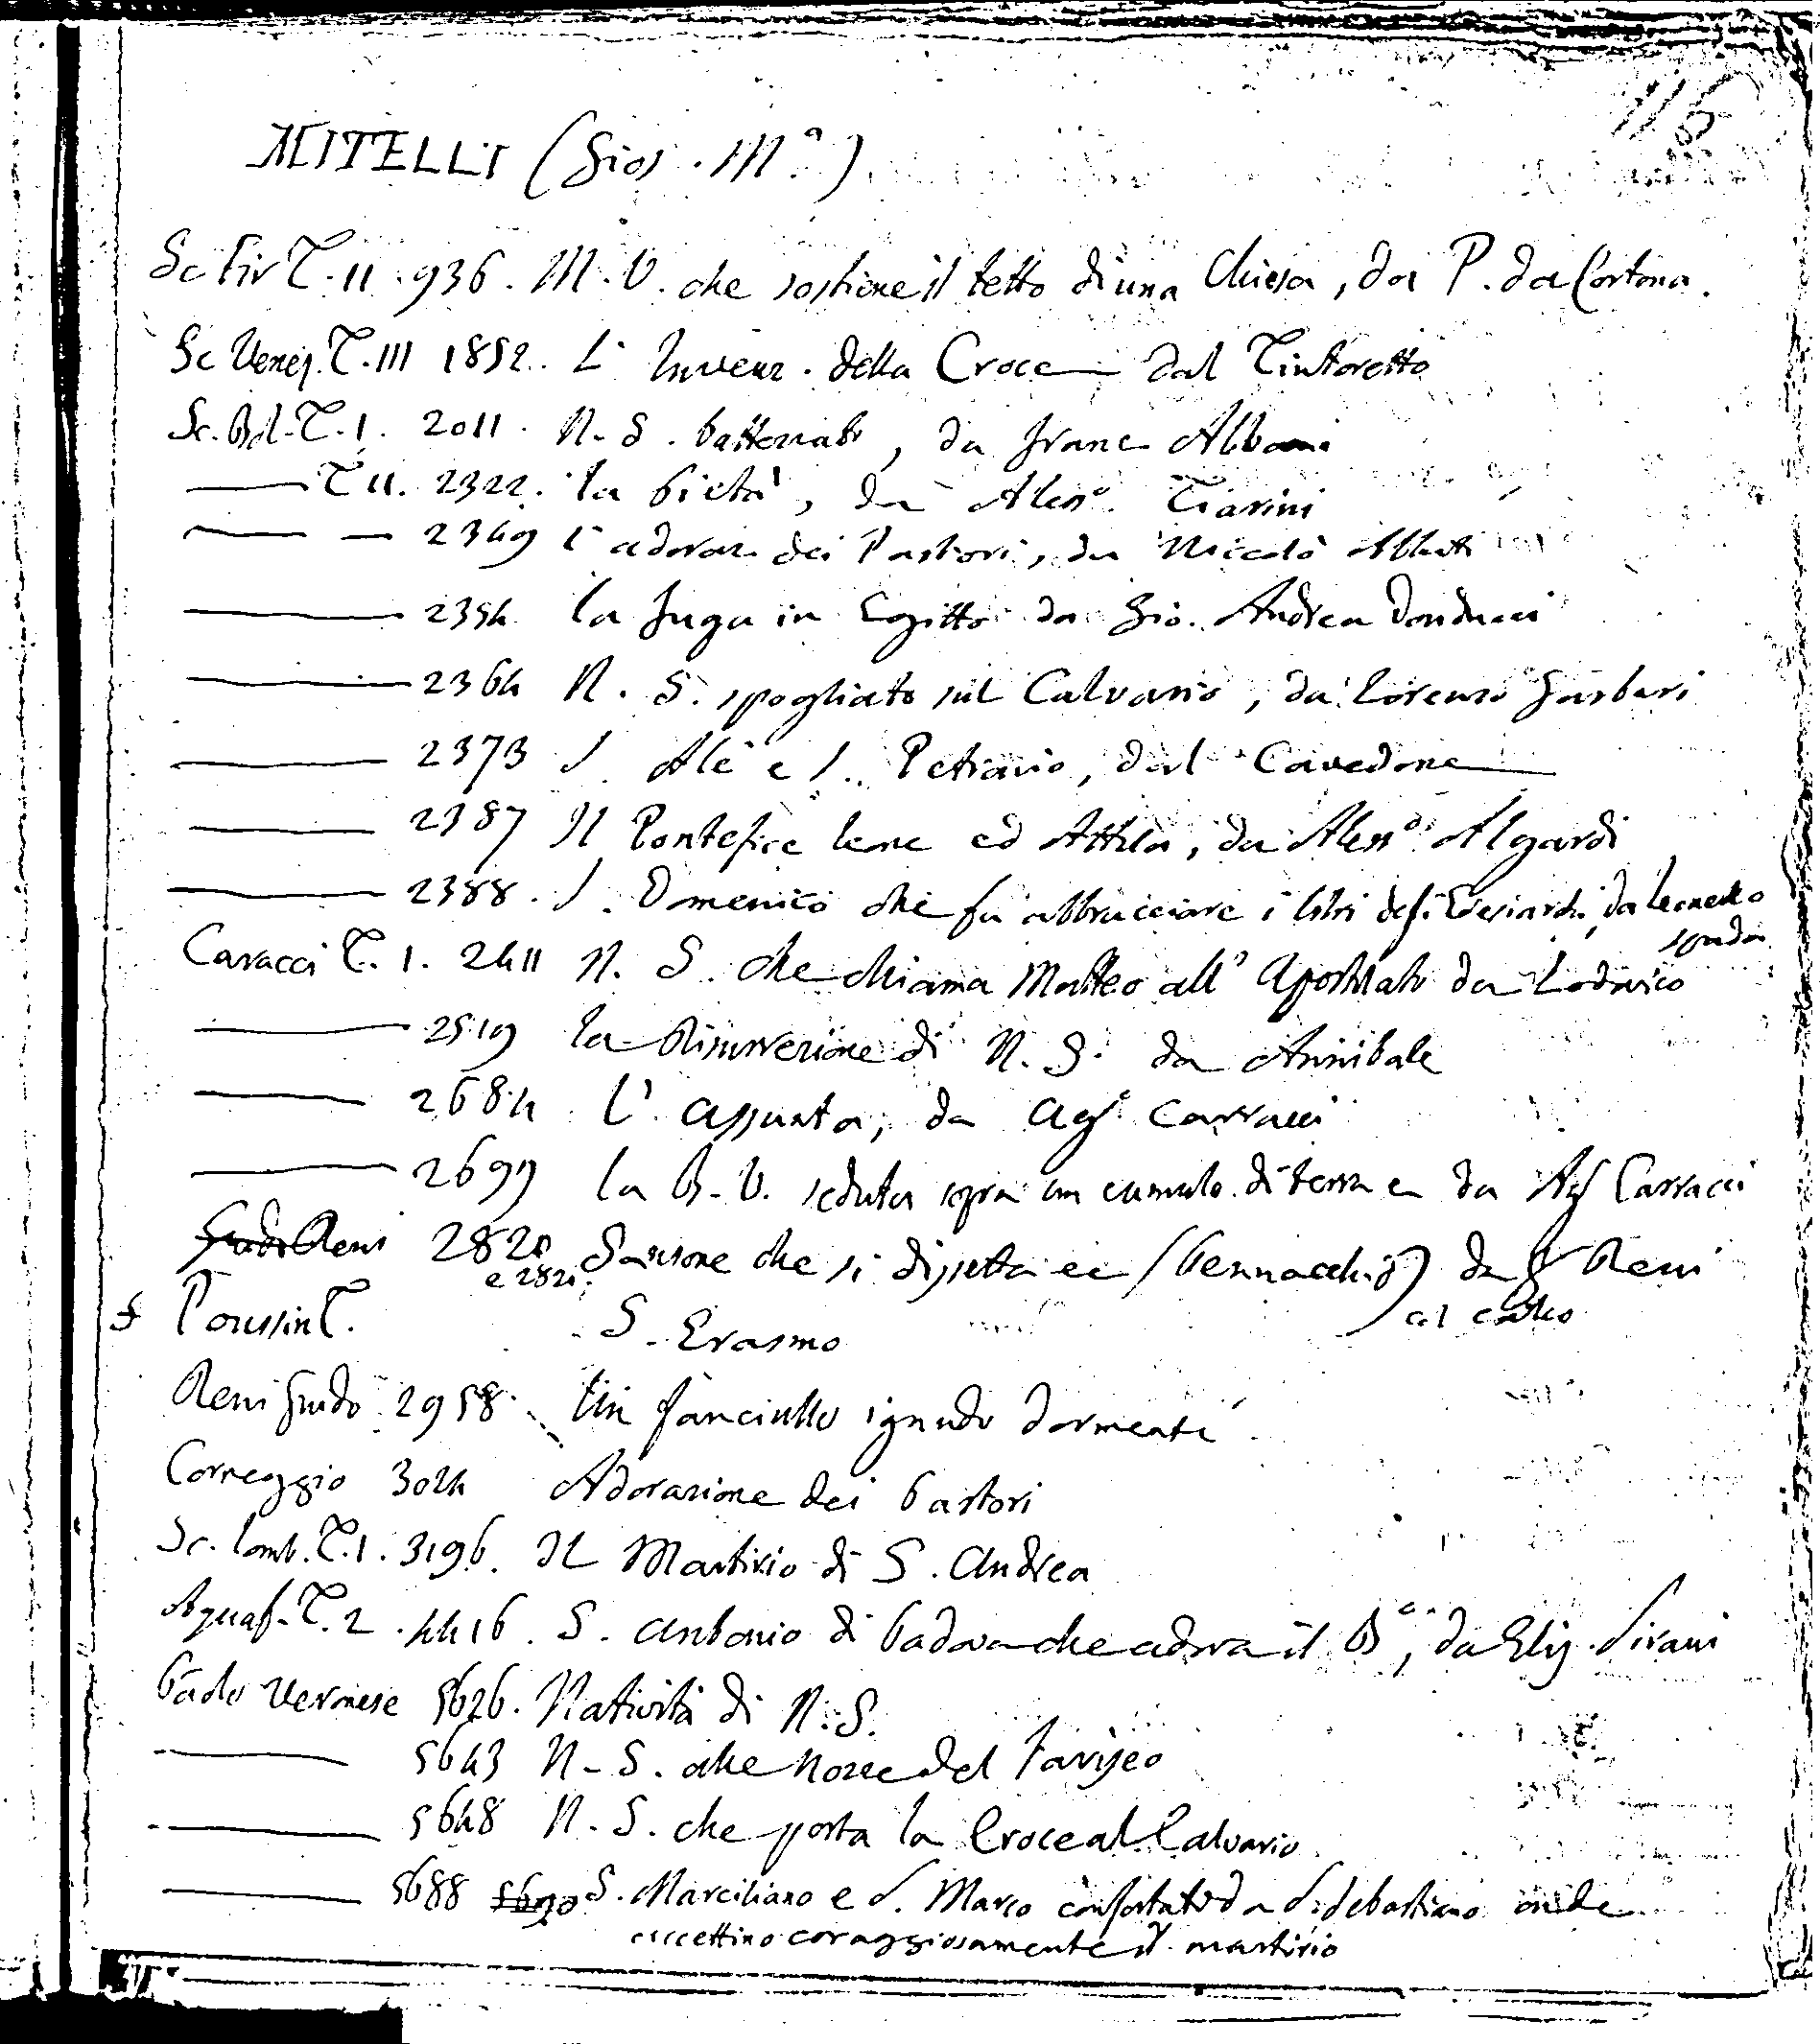 116
MITELLI (Gios. M.ª)
Sc Fir T. II. 936. M. V. che sostiene il tetto di una Chiesa, da P. da Cortona.
Sc Venez. T. III 1852. L' Invenz. della Croce dal Tintoretto
Sc. Bol. T. I. 2011. N. S. battezzato, da Franc Albani
T II. 2322. la Pietà, da Aless.º Tiarini
2349 l'adoraz. dei Pastori, da Niccolò Abbati
2354 la fuga in Egitto da Gio. Andrea Donducci
2364 N. S. spogliato sul Calvario, da Lorenzo Garbari
2373 S. Alò e S. Petronio, dal Cavedone
2387 Il Pontefice Leone ed Attila, da Aless.º Algardi
2388. S. Domenico che fa abbracciare i libri degl. Eresiarchi, da Leonello
Spada
Caracci T. I. 2411 N. S. che chiama Matteo all' Apostolato da Lodovico
2519 la Risurrezione di N. S. da Annibale
2684 L' Assunta, da Ag.º Carracci
2699 la B. V. seduta sopra un cumulo di terra e da Ag Carracci
Guido Reni 2820 Sansone che si disseta ec (Pennacchio) da G Reni
e 2821. al catto
f Poussin T. S. Erasmo
Reni Guido 2958. Un fanciullo ignudo dormente
Correggio 3024 Adorazione dei Pastori
Sc. Lomb. T. I. 3196. Il Martirio di S. Andrea
Aquaf. T. 2. 4416. S. Antonio di Padova che adora il B.º, da Elis. Sirani
Paolo Veronese 5626. Natività di N. S.
5643 N. S. alle nozze del Fariseo
5648 N. S. che porta la Croce al Calvario
5688 5690 S. Marciliano e S. Marco confortati da S. Sebastiano onde
accettino coraggiosamente il martirio